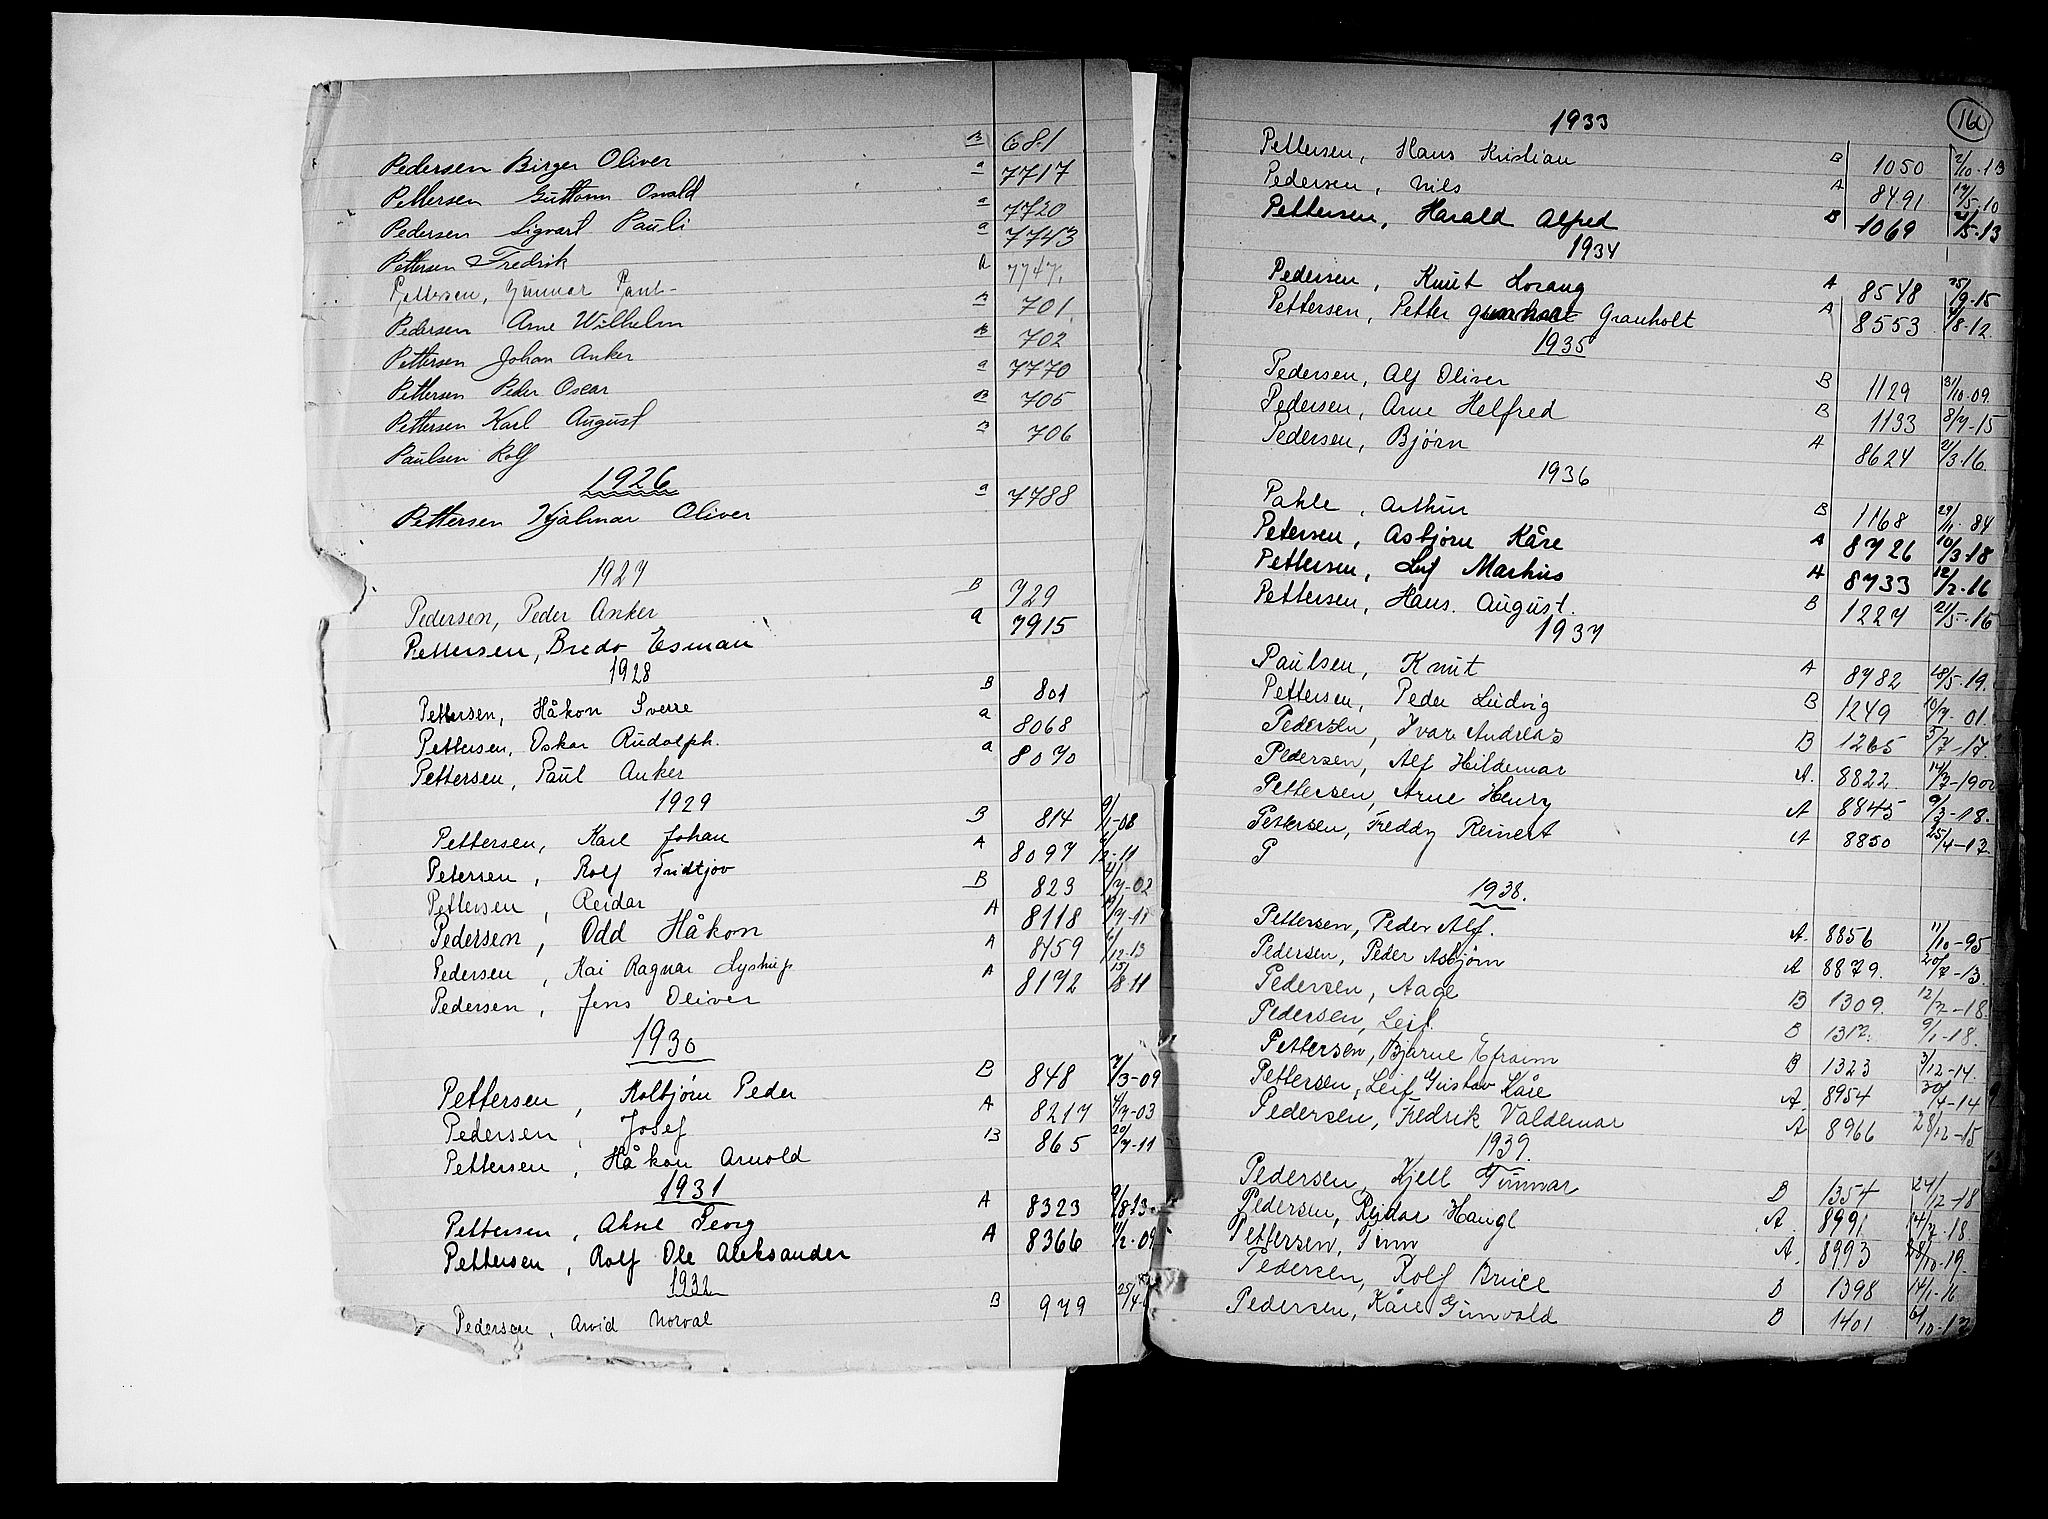 Pedersen Birger Oliver B 681
Pettersen Guttorm Osvald a 7717
Pedersen Sigvart Pauli a 7720
Pettersen Fredrik a 7743
Pettersen, Gunnar Paul A 7747.
Pedersen Arne Wilhelm B 701
Pettersen Johan Anker B 702
Pettersen Peder Oscar a 7770
Pettersen Karl August B 705
Paulsen Rolf B 706
1926
Pettersen Hjalmar Oliver a 7788
1927
Pedersen, Peder Anker B 729
Pettersen, Bredo Esman a 7915
1928
Pettersen, Håkon Sverre B 801
Pettersen, Oskar Rudolph. a 8068
Pettersen, Paul Anker a 8070
1929
Pettersen, Karl Johan B 814 9/1-08
Petersen, Rolf Fridtjov A 8097
Pettersen, Reidar B 823
Pedersen, Odd Håkon A 8118
Pedersen, Kai Ragnar Lystrup A 8159
Pedersen, Jens Oliver A 8172 15/8-11
1930
Pettersen, Kolbjørn Peder B 848 7/3-09
Pedersen, Josef A 8217
Pettersen, Håkon Arnold B 865 20/7-11
1931
Pettersen, Aksel Georg A 8323 9/8-13
Pettersen, Rolf Ole Aleksander A 8366 11/2-09
1932
Pedersen, Arvid Norval B 979
16
1933
Pettersen, Hans Kristian B 1050 2/10-13
Pedersen, Nils A 8491 14/5-10
Pettersen, Harald Alfred B 1069
1934
Pedersen, Knut Lorang A 8548 25/9-15
Pettersen, Petter Granholt A 8553
1935
Pedersen, Alf Oliver B 1129 31/10-09.
Pedersen, Arne Helfred B 1133 8/7-15
Pedersen, Bjørn A 8624 21/3-16
1936
Pahle, Arthur B 1168
Petersen, Asbjørn Kåre A 8726 10/3-18
Pettersen, Leif Markus A 8733 12/2-16
Pettersen, Hans. August. B 1227 21/5-16
1937
Paulsen, Knut A 8782 18/5-19.
Pettersen, Peder Ludvig B 1249 10/7-01.
Pedersen, Ivar Andreas B 1265 5/7-17.
Pedersen, Alf Hildemar A. 8822
Pettersen, Arne Henry A 8845 9/3-18.
Pettersen, Freddy Reinert A 8850 25/4-17.
P
1938.
Pettersen, Peder Alf. A. 8856 11/10-95
Pedersen, Peder Asbjørn A 8879. 20/7-13.
Pedersen, Aage B 1309. 12/7-18.
Pedersen, Leif. B 1312. 9/1-18.
Pettersen, Bjarne Efraim B 1323 3/12-14.
Pettersen, Leif Gustav Kåre A. 8954 30/4-14
Pedersen, Fredrik Valdemar A 8966 28/12-15
1939.
Pedersen, Kjell Gunnar B 1354 24/12-18
Pedersen, Reidar Haugl A. 8991 14/7-18
Pettersen, Finn A. 8993
Pedersen, Rolf Bruce B 1398 14/1-16
Pedersen, Kåre Gunvald B 1401